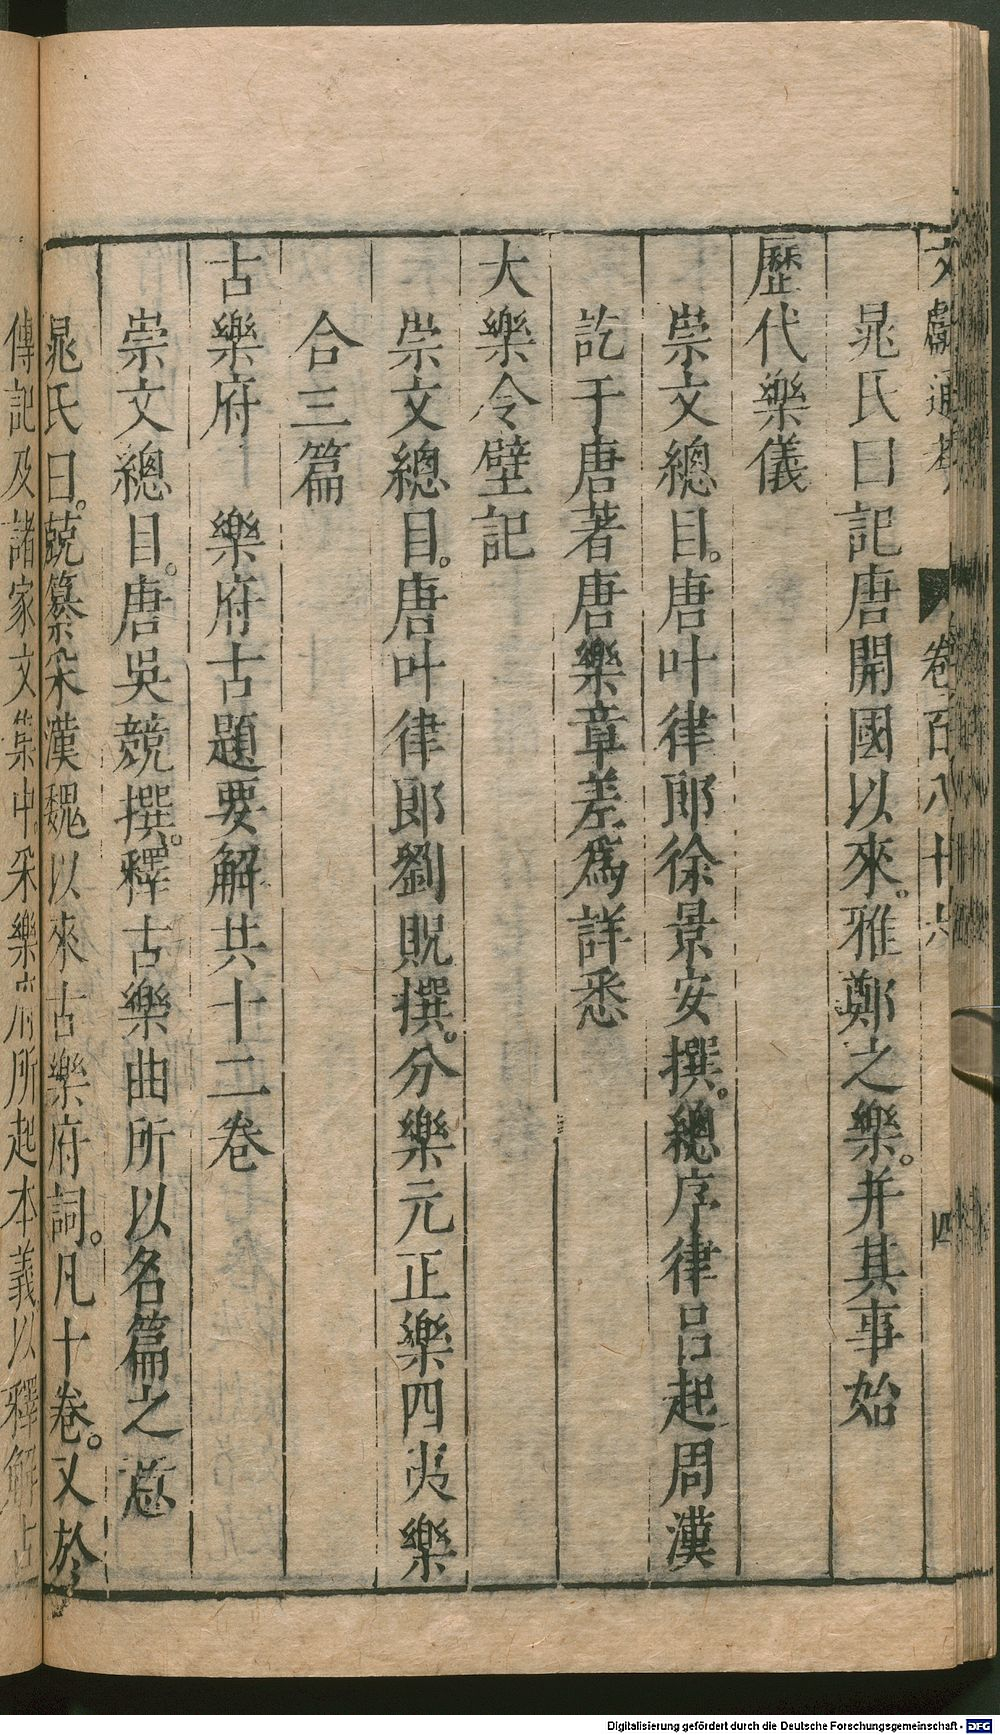 文獻通考 卷百八十六 四
晁氏曰記唐開國以來。雅鄭之樂。并其事始
歷代樂儀
崇文總目。唐叶律郎徐景安撰。總序律呂起周漢
訖于唐著唐樂章差爲詳悉
大樂令壁記
崇文總目。唐叶律郎劉貺撰。分樂元正樂四夷樂
合三篇
古樂府 樂府古題要解共十二卷
崇文總目。唐吳兢撰。釋古樂曲所以名篇之意
晁氏曰。兢纂采漢魏以來古樂府詞。凡十卷。又於
傳記及諸家文集中。采樂府所起本義以釋解古
Digitalisierung gefördert durch die Deutsche Forschungsgemeinschaft - DFG